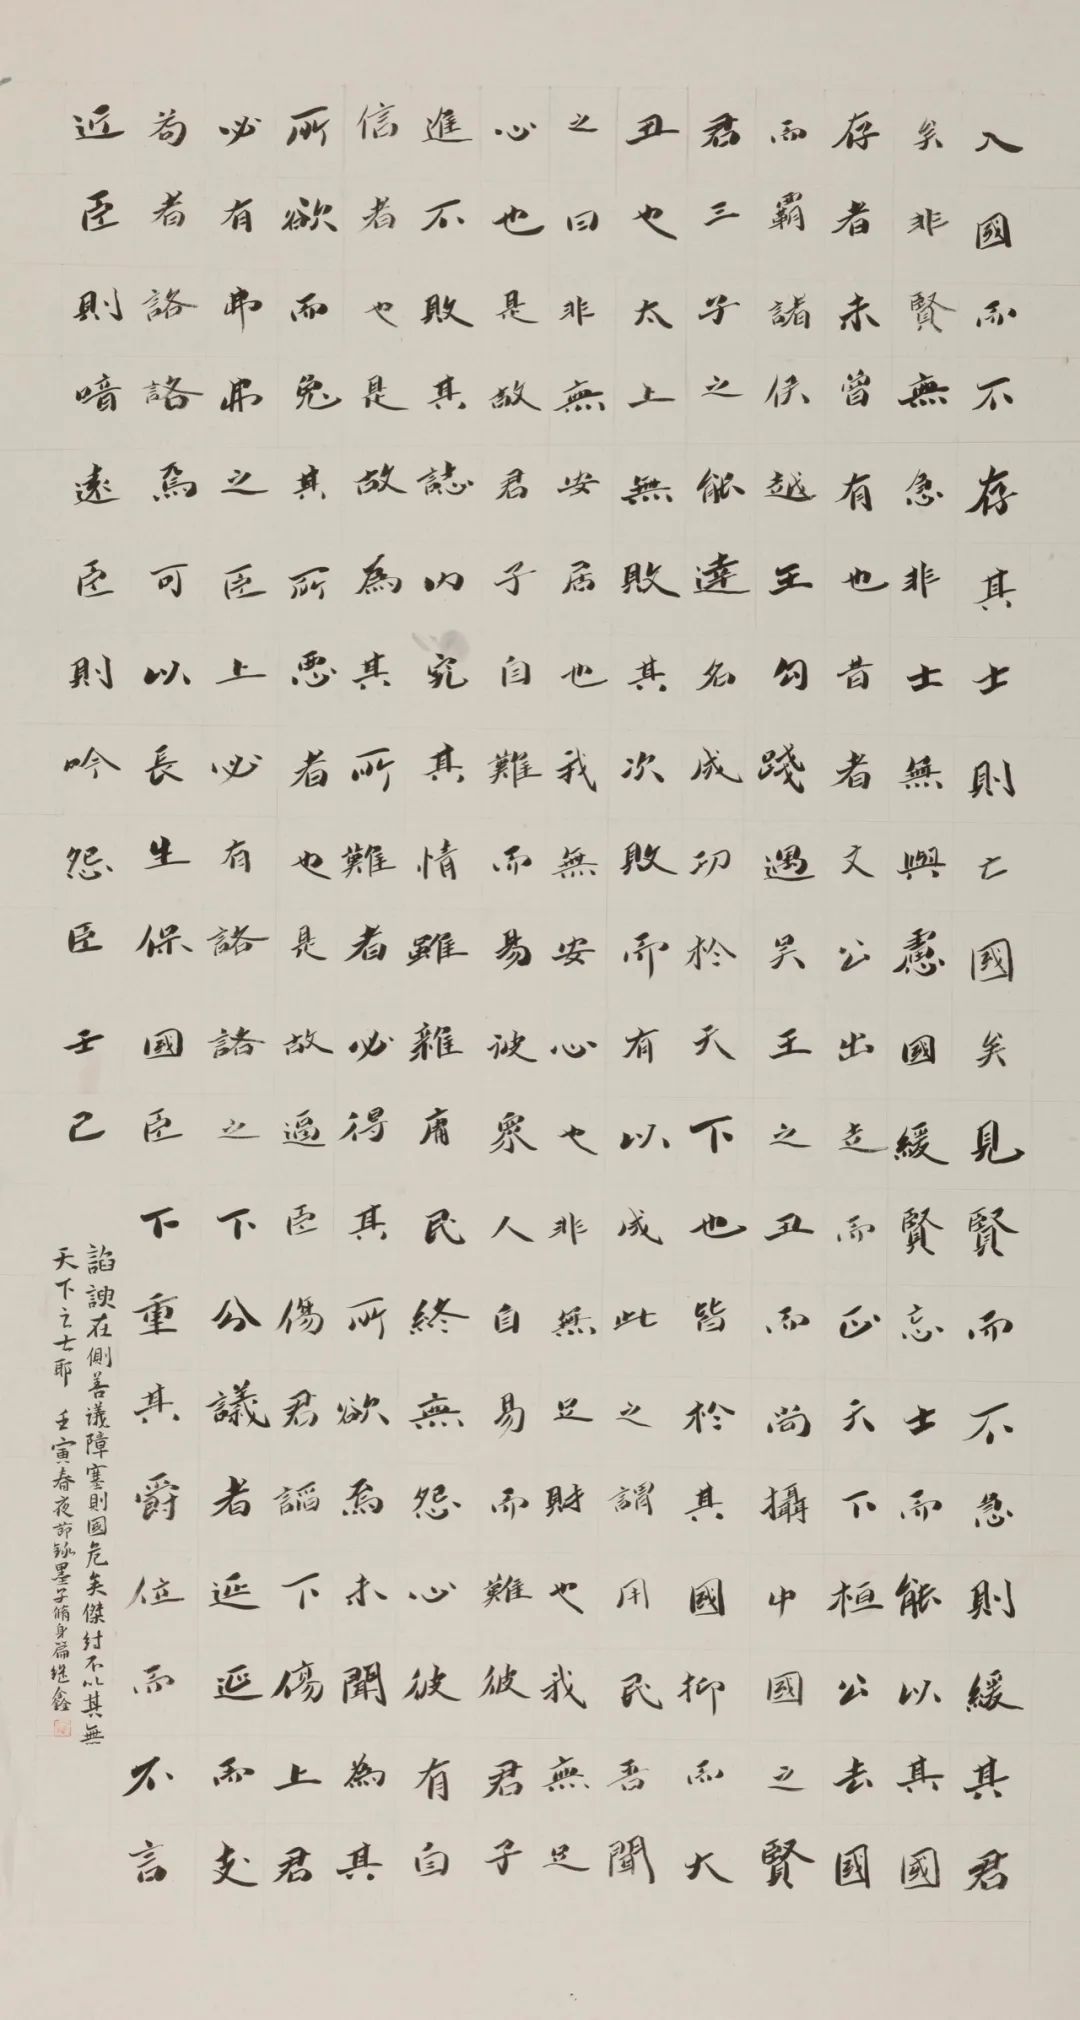 入國而不存其士則亡國矣見賢而不急則緩其君
矣非賢無急非士無與慮國緩賢忘士而能以其國
存者未曾有也昔者文公出走而正天下桓公去國
而霸諸侯越王勾踐遇吳王之丑而尚攝中國之賢
君三子之能達名成功於天下也皆於其國抑而大
丑也太上無敗其次敗而有以成此之謂用民吾聞
之曰非無安居也我無安心也非無足財也我無足
心也是故君子自難而易彼眾人自易而難彼君子
進不敗其誌內究其情雖雜庸民終無怨心彼有自
信者也是故為其所難者必得其所欲焉未聞為其
所欲而免其所惡者也是故逼臣傷君諂下傷上君
必有弗弗之臣上必有詻諸之下分議者延延而支
苟者詻詻焉可以長生保國臣下重其爵位而不言
近臣則喑遠臣則吟怨臣壬己
諂諛在側善議障塞則國危矣傑紂不以其無
天下之士耶 壬寅春夜節錄墨子脩身篇继鑫